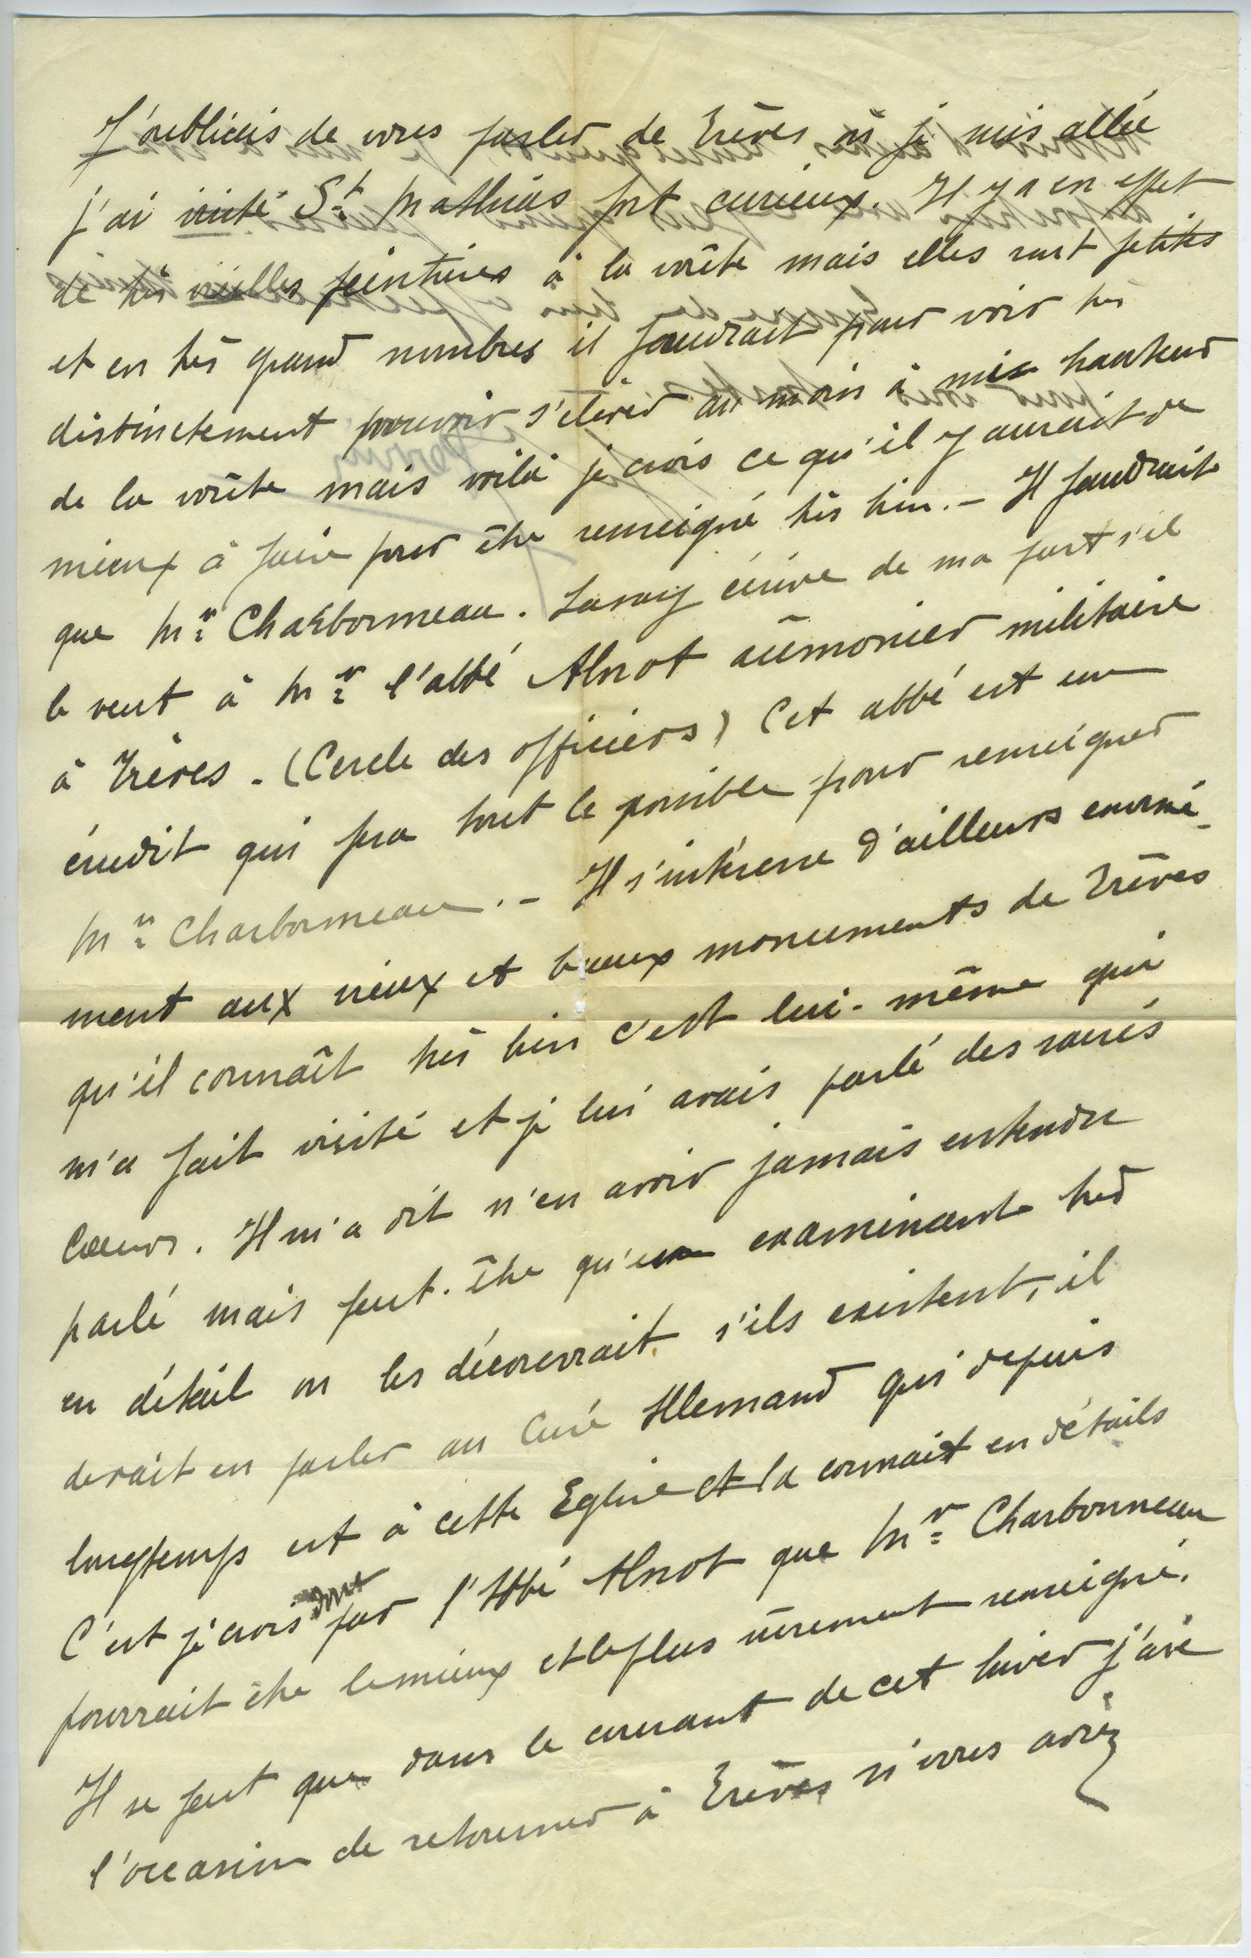 J'oubliais de vous parler de Trèves où je suis allée
j'ai visité St Mathias fort curieux. Il y a en effet
de très vieilles peintures à la voûte mais elles sont petites
et en très grand nombres il faudrait pour voir très
distinctement pouvoir s'élever au moins à mie hauteur
de la voûte mais voilà je crois ce qu'il y aurait de
mieux à faire pour être renseigné très bien. — Il faudrait
que Mr Charbonneau. Lassay écrive de ma part s'il
le veut à Mr l'abbé Alnot aûmonier militaire
à Trèves. (Cercle des officiers) Cet abbé est un
érudit qui fera tout le possible pour renseigner
Mr Charbonneau. — Il s'intéresse d'ailleurs enormé-
ment aux vieux et beaux monuments de Trèves
qu'il connaît très bien c'est lui-même qui
m'a fait visité et je lui avais parlé des sacrés
Cœurs. Il m'a dit n'en avoir jamais entendu
parlé mais peut-être qu'en examinant très
en détail on les découvrirait s'ils existent, il
devait en parler au Curé Allemand qui depuis
longtemps est à cette Eglise et la connait en détails
C'est je crois donc par l'Abbé Alnot que Mr Charbonneau
pourrait être le mieux et le plus sûrement renseigné.
Il se peut que dans le courant de cet hiver j'aie
l'occasion de retourner à Trèves si vous aviez